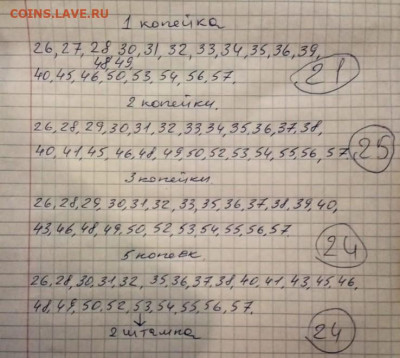 COINS.LAVE.RU
1 копейка
26, 27, 28 30, 31, 32, 33, 34, 35, 36, 39,
48, 49,
40, 45, 46, 50, 53, 54, 56, 57.
21
2 копейки.
26, 28, 29, 30, 31, 32, 33, 34, 35, 36, 37, 38,
40, 41, 45, 46, 48, 49, 50, 52, 53, 54, 55, 56, 57
25
3 копейки.
26, 28, 29, 30, 31, 32, 33, 35, 36, 37, 38, 39, 40,
43, 46, 48, 49, 50, 52, 53, 54, 55, 56, 57
24
5 копеек.
26, 28, 30, 31, 32, 35, 36, 37, 38, 40, 41, 43, 45, 46,
48, 49, 50, 52, 53, 54, 55, 56, 57.
2 штемпа
24